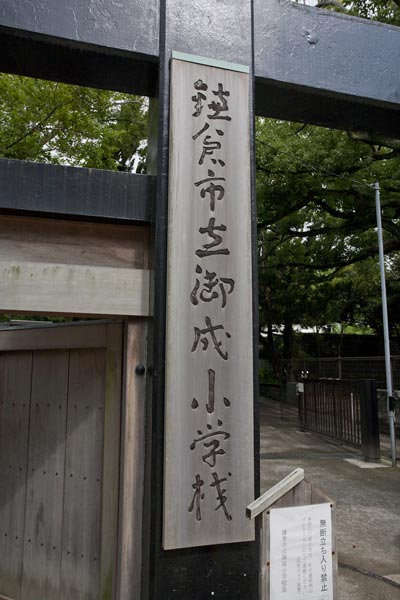 鎌倉市立御成小学校
無断立ち入り禁止
鎌倉市立御成小学校長